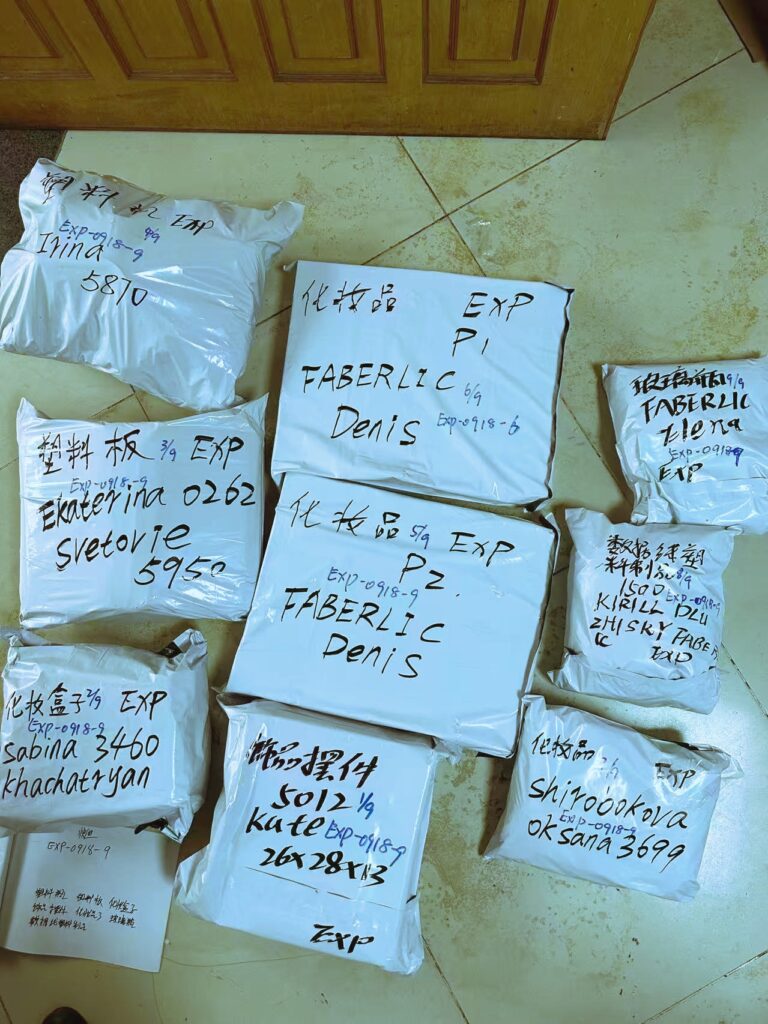 塑料 EXP
EXP-0918-9 4/9
Irina
5870
化妆品 EXP
P1
FABERLIC 6/9
Denis EXP-0918-6
玻璃瓶 9/9
FABERLIC
Elena
EXP-0918-9
EXP
塑料板 3/9 EXP
EXP-0918-9
Ekaterina 0262
Svetovie
5950
化妆品 5/9 EXP
P2.
EXP-0918-9
FABERLIC
Denis
数据线塑
料制品 8/9
1500 EXP-0918-9
KIRILL DLU
ZHISKY FABER
IC EXP
化妆盒子 2/9 EXP
EXP-0918-9
Sabina 3460
Khachatryan
饰品摆件
5012 1/9
Kate EXP-0918-9
26x28x13
EXP
化妆品 EXP
Shirobokova
EXP-0918-9
Oksana 3699
EXP-0918-9